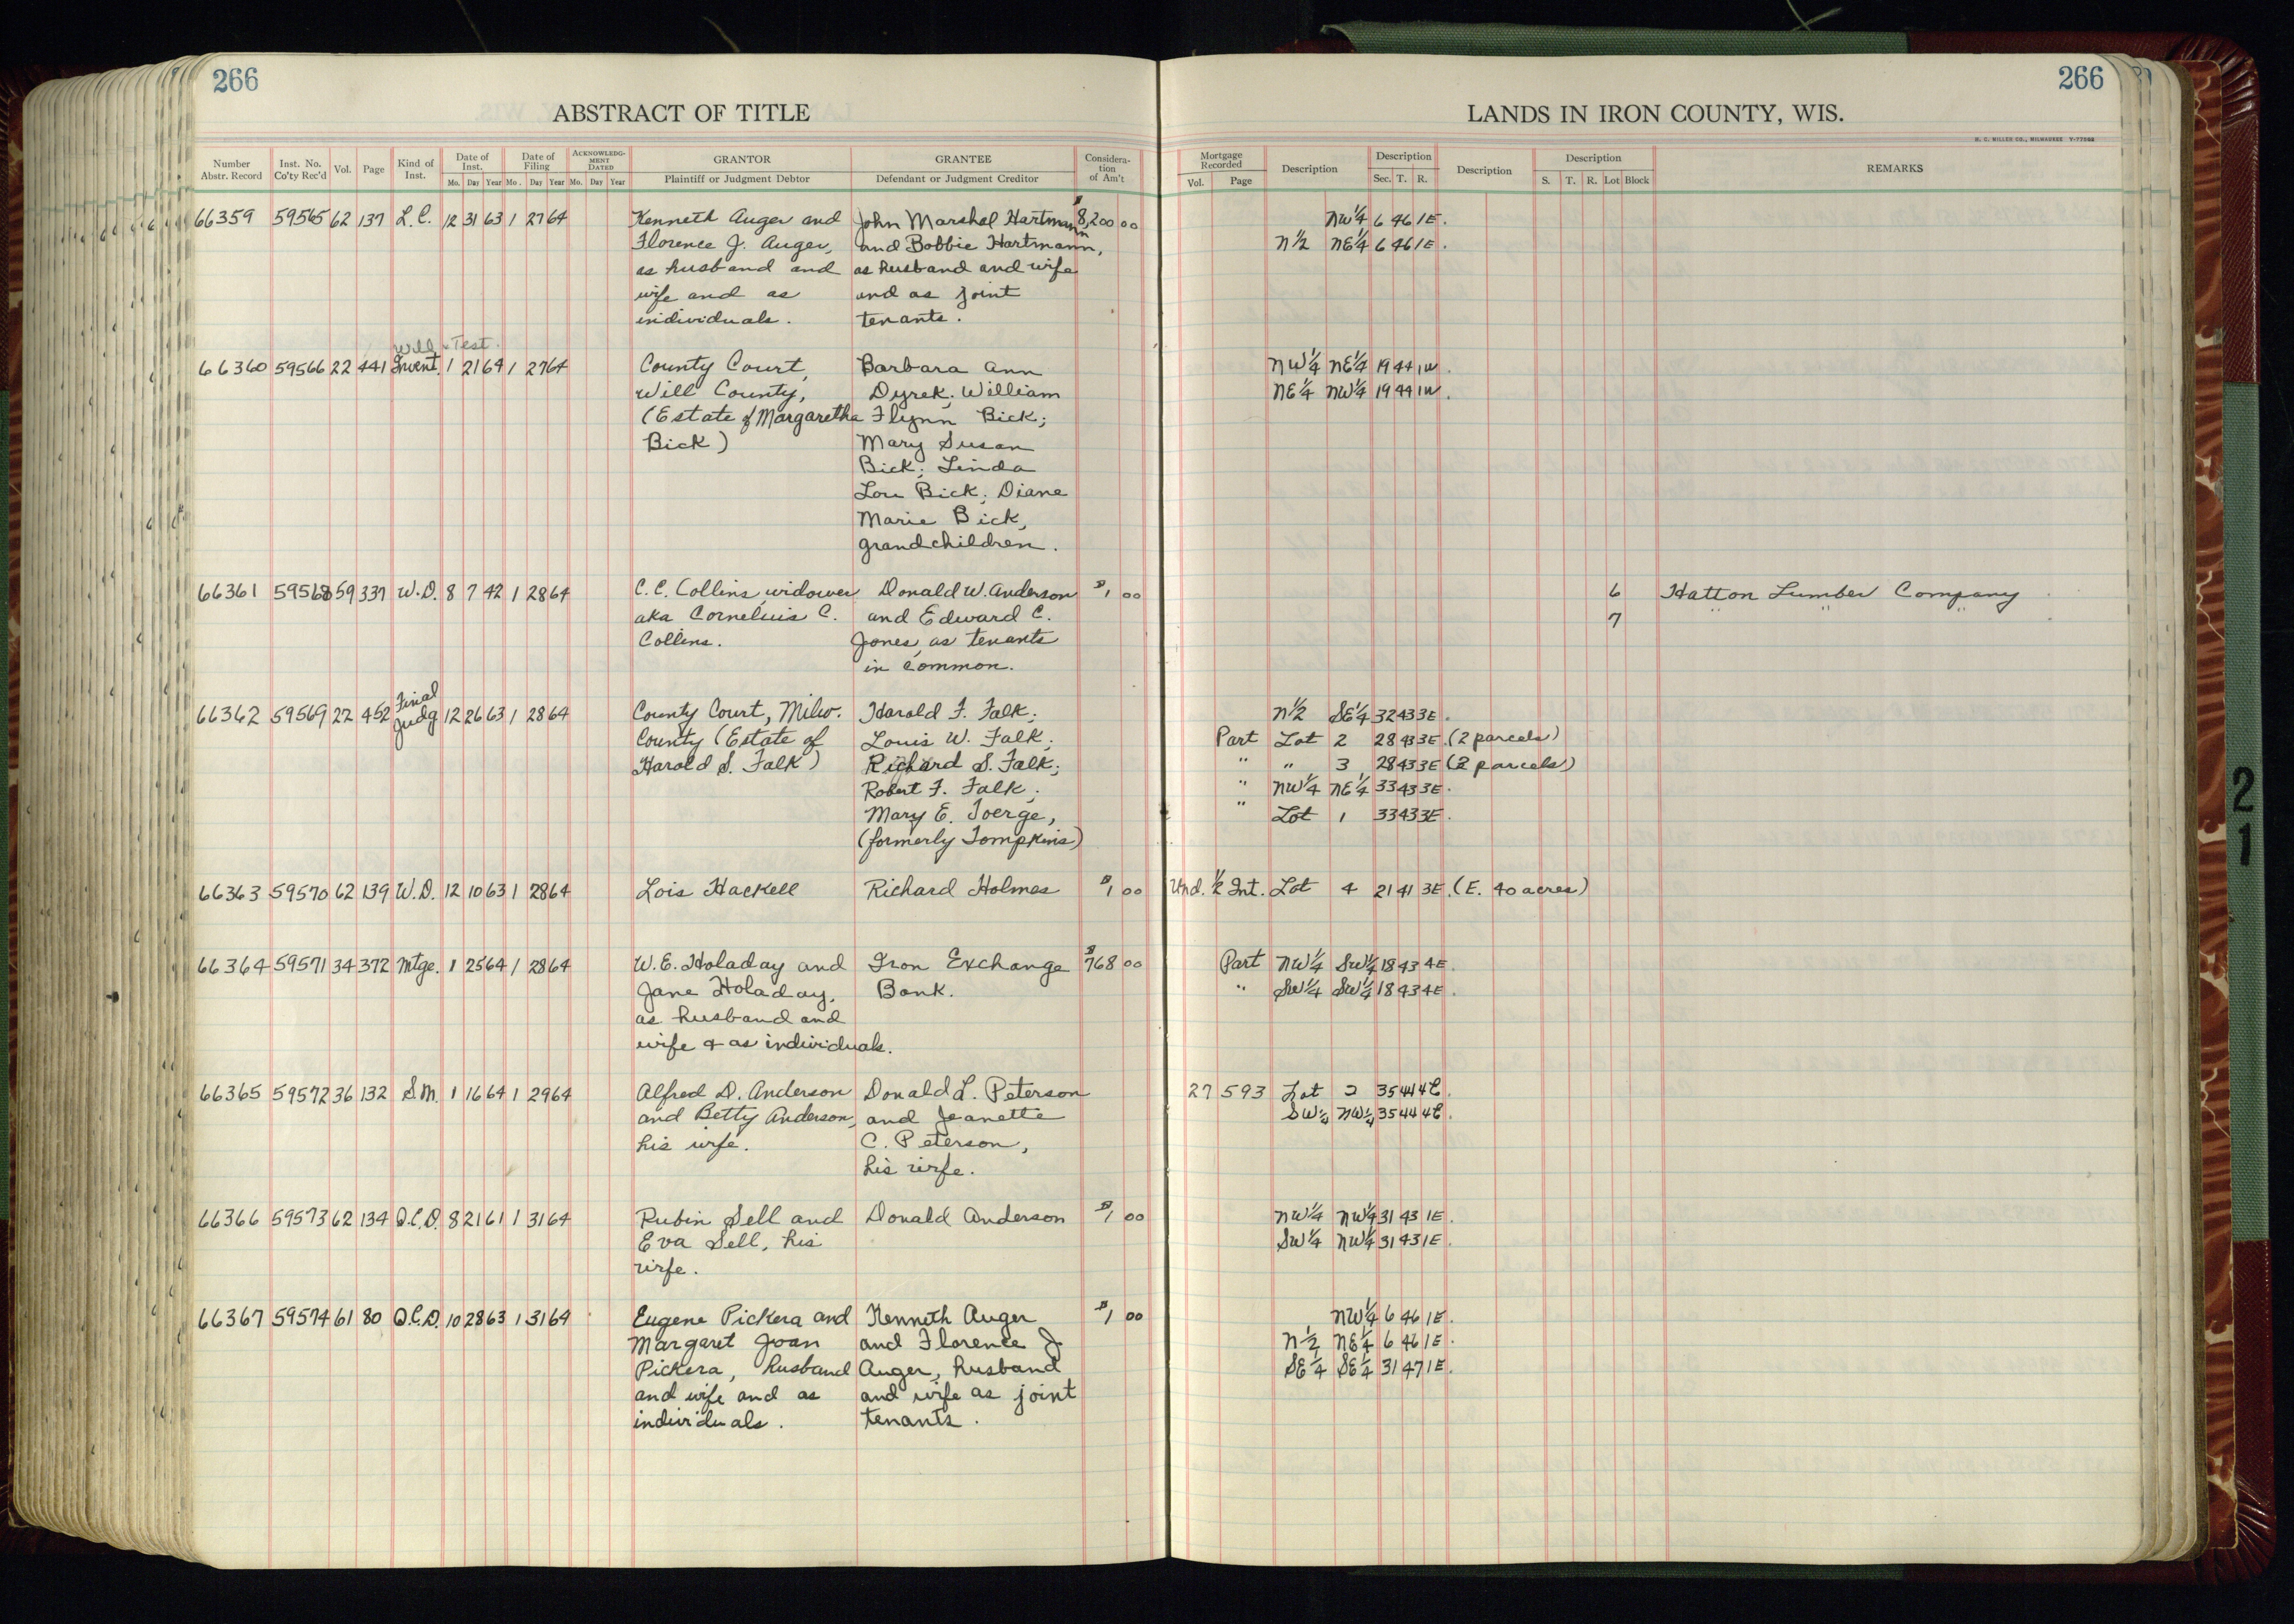 266
266
ABSTRACT OF TITLE
LANDS IN IRON COUNTY, WIS.
H. C. MILLER CO., MILWAUKEE
Number Abstr. Record | Inst. No. Co'ty Rec'd | Vol. | Page | Kind of Inst. | Date of Inst. Mo. Day Year | Date of Filing Mo. Day Year | ACKNOWLEDGMENT DATED Mo. Day Year | GRANTOR Plaintiff or Judgment Debtor | GRANTEE Defendant or Judgment Creditor | Consideration of Am't | Mortgage Recorded Vol. Page | Description | Description Sec. T. R. | Description | Description S. T. R. Lot Block | REMARKS
66359 59565 62 137 L.C. 12 31 63 1 27 64 Kenneth Auger and John Marshal Hartmann $8,200 00 NW¼ 6 46 1E.
Florence J. Auger, and Bobbie Hartmann, N½ NE¼ 6 46 1E.
as husband and as husband and wife
wife and as and as joint
individuals. tenants.
Will & Test.
66360 59566 22 441 Invent. 1 21 64 1 27 64 County Court, Barbara Ann NW¼ NE¼ 19 44 1W.
Will County, Dyrek; William NE¼ NW¼ 19 44 1W.
(Estate of Margaretha Flynn Bick;
Bick) Mary Susan
Bick; Linda
Lou Bick; Diane
Marie Bick,
grandchildren.
66361 59568 59 337 W.D. 8 7 42 1 28 64 C.C. Collins, widower Donald W. Anderson $1 00 6 Hatton Lumber Company
aka Cornelius C. and Edward C. 7 " " "
Collins. Jones, as tenants
in common.
Final
66362 59569 22 452 Judg 12 26 63 1 28 64 County Court, Milw. Harold F. Falk; N½ SE¼ 32 43 3E.
County (Estate of Louis W. Falk; Part Lot 2 28 43 3E. (2 parcels)
Harold S. Falk) Richard S. Falk; " " 3 28 43 3E (2 parcels)
Robert F. Falk; " NW¼ NE¼ 33 43 3E.
Mary E. Toerge, " Lot 1 33 43 3E.
(formerly Tompkins)
66363 59570 62 139 W.D. 12 10 63 1 28 64 Lois Hackell Richard Holmes $1 00 Und. ½ Int. Lot 4 21 41 3E. (E. 40 acres)
66364 59571 34 372 Mtge. 1 25 64 1 28 64 W.E. Holaday and Iron Exchange $768 00 Part NW¼ SW¼ 18 43 4E.
Jane Holaday, Bank. " SW¼ SW¼ 18 43 4E.
as husband and
wife & as individuals.
66365 59572 36 132 S.M. 1 16 64 1 29 64 Alfred D. Anderson Donald L. Peterson 27 593 Lot 2 35 44 4E.
and Betty Anderson, and Jeanette SW¼ NW¼ 35 44 4E.
his wife. C. Peterson,
his wife.
66366 59573 62 134 Q.C.D. 8 21 61 1 31 64 Rubin Sell and Donald Anderson $1 00 NW¼ NW¼ 31 43 1E.
Eva Sell, his SW¼ NW¼ 31 43 1E.
wife.
66367 59574 61 80 Q.C.D. 10 28 63 1 31 64 Eugene Pickera and Kenneth Auger $1 00 NW¼ 6 46 1E.
Margaret Joan and Florence J. N½ NE¼ 6 46 1E.
Pickera, husband Auger, husband SE¼ SE¼ 31 47 1E.
and wife and as and wife as joint
individuals. tenants.
21